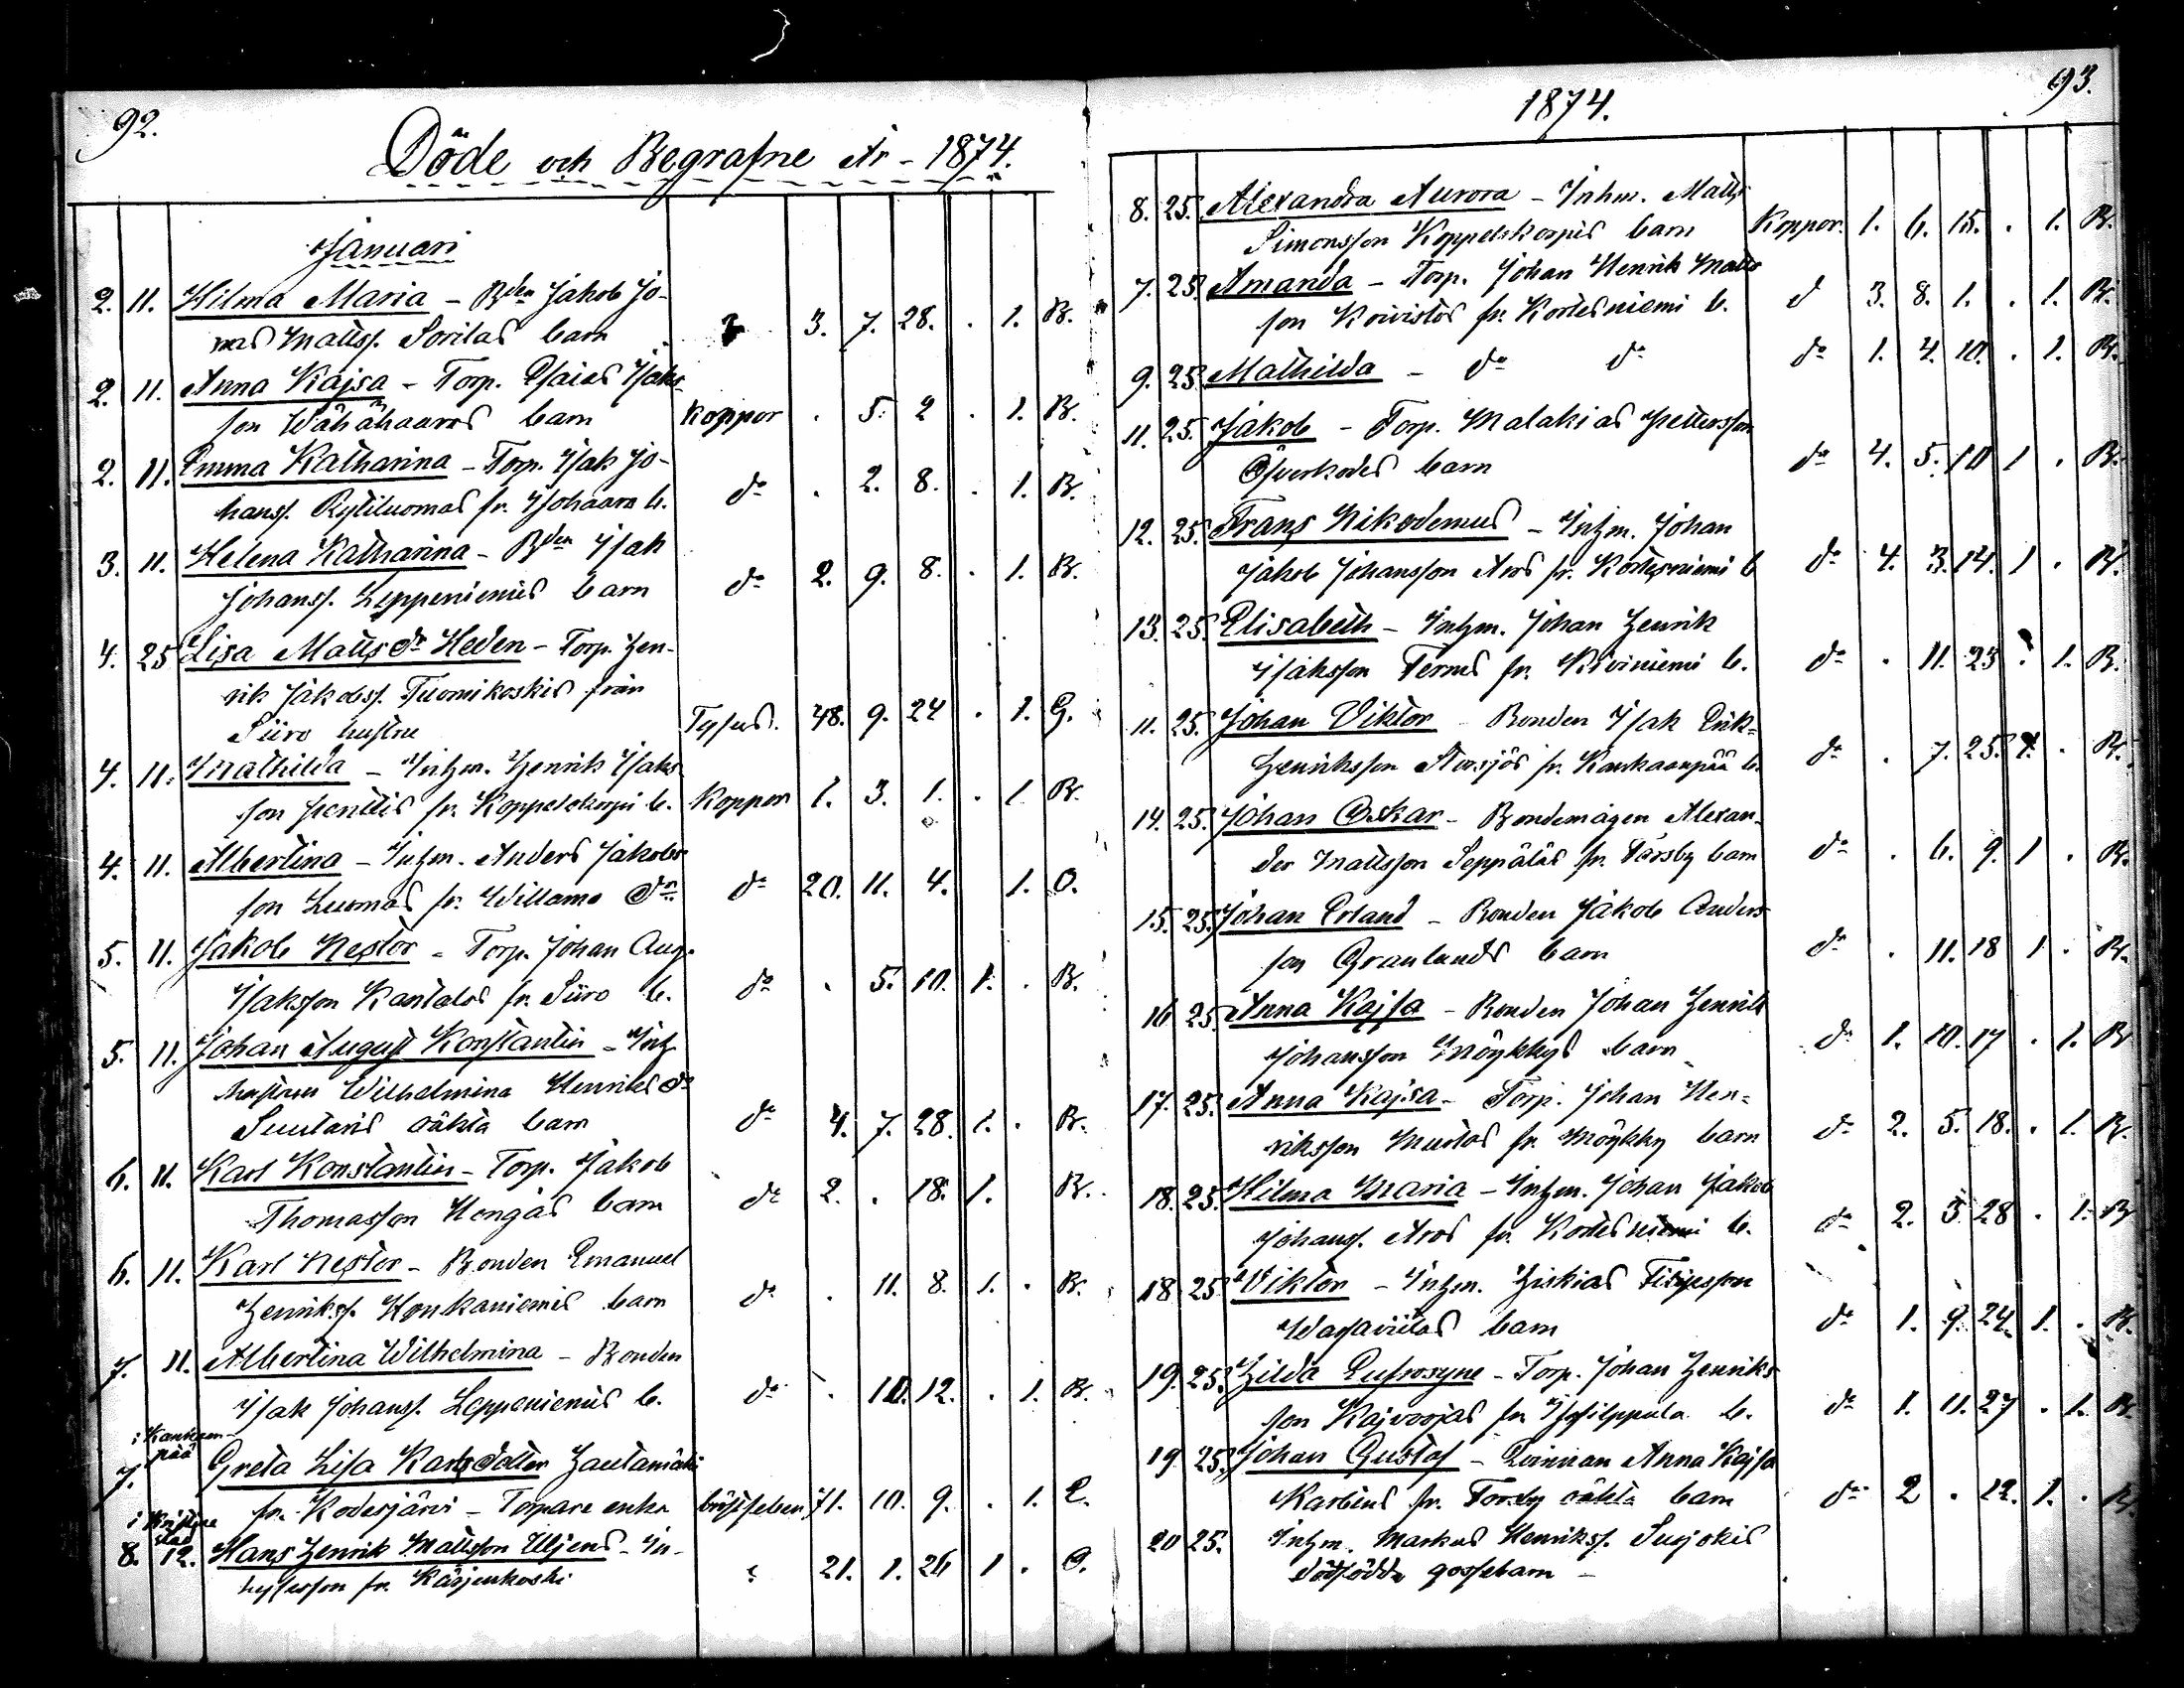 92.
Döde och Begrafne År - 1874.
Januari
2. 11. Hilma Maria - Bden Jakob Jo-
nas Mattss. Sorilas barn ? 3. 7. 28. . 1. B.
2. 11. Anna Kajsa - Torp. Esaias Isaks-
son Wähähaaros barn Koppor . 5. 2 . 1. B.
2. 11. Emma Katharina - Torp. Isak Jo-
hanss. Rytiluomas fr. Isohaara b. do . 2. 8. . 1. B.
3. 11. Helena Katharina - Bden Isak
Johanss. Leppeniemis barn do 2. 9. 8. . 1. B.
4. 25 Lisa Matts dr Heden - Torp. Hen-
rik Jakobss. Tuomikoskis från
Siiro hustru Tyfus. 48. 9. 24 . 1. G.
4. 11. Mathilda - Inhm. Henrik Isaks
son Penttis fr. Koppelokorpi b. Koppor 1. 3. 1. . 1 B.
4. 11. Albertina - Inhm. Anders Jakobs
son Luomas fr. Willamo dr do 20. 11. 4. 1. O.
5. 11. Jakob Nestor - Torp. Johan Aug.
Isaksson Kantalos fr. Siiro b. do . 5. 10. 1. . B.
5. 11. Johan August Konstantin - Inh.
hustrun Wilhelmina Henriks dr
Suutaris oäkta barn do 4. 7. 28. 1. . B.
6. 11. Karl Konstantin - Torp. Jakob
Thomasson Hongas barn do 2. . 18. 1. B.
6. 11. Karl Nestor - Bonden Emanuel
Henrikss. Honkaniemis barn do . 11. 8. 1. . B.
7. 11. Albertina Wilhelmina - Bonden
Isak Johanss. Leppeniemis b. do . 10. 12. . 1. B.
i Kankaan-
pää
7. Greta Lisa Karls dotter Hautamäki
fr. Kodesjärvi - Torpare enka bröstfeber 71. 10. 9. . 1. E.
i Kristine
stad
8. 12. Hans Henrik Mattsson Uljens - In-
hysesson fr. Kärjenkoski ? 21. 1. 26 1 . O.
93.
1874.
8. 25. Alexandra Aurora - Inhm. Matts
Simonsson Koppelokorpis barn Koppor. 1. 6. 15. . 1. B.
7. 25. Amanda - Torp. Johan Henrik Matts
son Koivistos fr. Kortesniemi b. d 3. 8. 1. . 1. B.
9. 25 Mathilda - do do do 1. 4. 10. . 1. B.
11. 25. Jakob - Torp. Malakias Pettersson
barn do 4. 5. 10 1 . B.
12. 25. Frans Nikodemus - Inhm. Johan
Jakob Johansson Aros fr. Kortesniemi b do 4. 3. 14. 1 . B.
13. 25. Elisabeth - Inhm. Johan Henrik
Isaksson Ternus fr. Kiviniemi b. do . 11. 23 . 1. B.
11. 25. Johan Viktor - Bonden Isak Erik-
Henriksson Aursjös fr. Kankaanpää b. do . 7. 25. 1. . B.
14. 25. Johan Oskar - Bondemågen Alexan-
der Mattsson Seppäläs fr. Pärsby barn do . 6. 9. 1 . B.
15. 25. Johan Erland - Bonden Jakob Anders
son Granlunds barn do . 11. 18 1 . B.
16 25. Anna Kajsa - Bonden Johan Henrik
Johansson Möykkys barn do 1. 10. 17 . 1. B
17. 25. Anna Kajsa - Torp. Johan Hen-
riksson Mustas fr. Möykky barn do 2. 5. 18. . 1. B.
18. 25. Hilma Maria - Inhm. Johan Jakob
Johanss. Aros fr. Kortesniemi b. do 2. 5 28 . 1. B
18 25 Viktor - Inhm. Hiskias Filipsson
Wasaviitas barn do 1. 9. 24. 1. . B.
19. 25. Hilda Eufrosyne - Torp. Johan Henriks
son Kajvoojas fr. Isofilppula b. do 1. 11. 27 . 1. B.
19. 25. Johan Gustaf - Qvinnan Anna Kajsa
Karlens fr. Torby oäkta barn do 2 . 12. 1. . B.
20 25. Inhm. Markus Henrikss. Susjokis
dödfödda gossebarn -